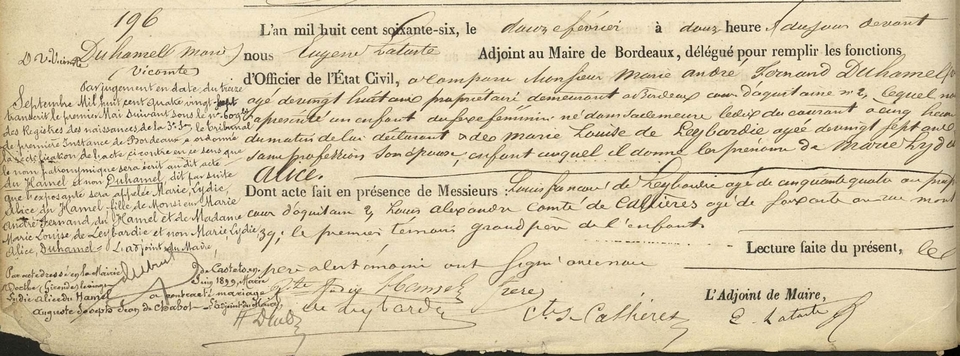 196
Duhamel
(Vicomte)
Par jugement en date du treize
Septembre Mil huit cent quatre vingt-sept
transcrit le premier Mai suivant sous le n°
des Registres des naissances de la 3e Son, le tribunal
de première Instance de Bordeaux a ordonné
la rectification de l'acte ci-contre en ce sens que
le nom patronymique sera écrit au dit acte
du Hamel et non Duhamel, dit par suite
que l'exposante sera appelée Marie, Lydie,
Alice du Hamel fille de Monsieur Marie
André Fernand du Hamel et de Madame
Marie Louise de Leybardie et non Marie, Lydie
Alice, Duhamel. L'adjoint du Maire,
Par acte dressé en la Mairie
Lydie Alice du Hamel
a contracté mariage
Auguste Joseph Jean de Chabot
Juin 1899, Marie
L'an mil huit cent soixante-six, le douze février à douze heures du jour devant
nous Eugène Lataste Adjoint au Maire de Bordeaux, délégué pour remplir les fonctions
d'Officier de l'État Civil, a comparu Monsieur Marie André Fernand Duhamel
agé de vingt huit ans propriétaire demeurant à Bordeaux cour d'aquitaine n° 2, lequel nous
a présenté un enfant du sexe féminin né dans sa demeure le dix du courant à cinq heures
du matin de lui déclarant & de Marie Louise de Leybardie agée de vingt sept ans
sans profession son épouse, enfant auquel il donne les prénoms de Marie Lydie
Alice.
Dont acte fait en présence de Messieurs Louis de Leybardie agé de cinquante quatre ans
cour d'aquitaine 2, Louis alexandre Comte de Cathères agé de
39; le premier témoin grand père de l'enfant.
Lecture faite du présent, les
père et les témoins ont signé avec nous
L'Adjoint de Maire,
du Hamel
de Leybardie
Cte de Cathères
E. Lataste